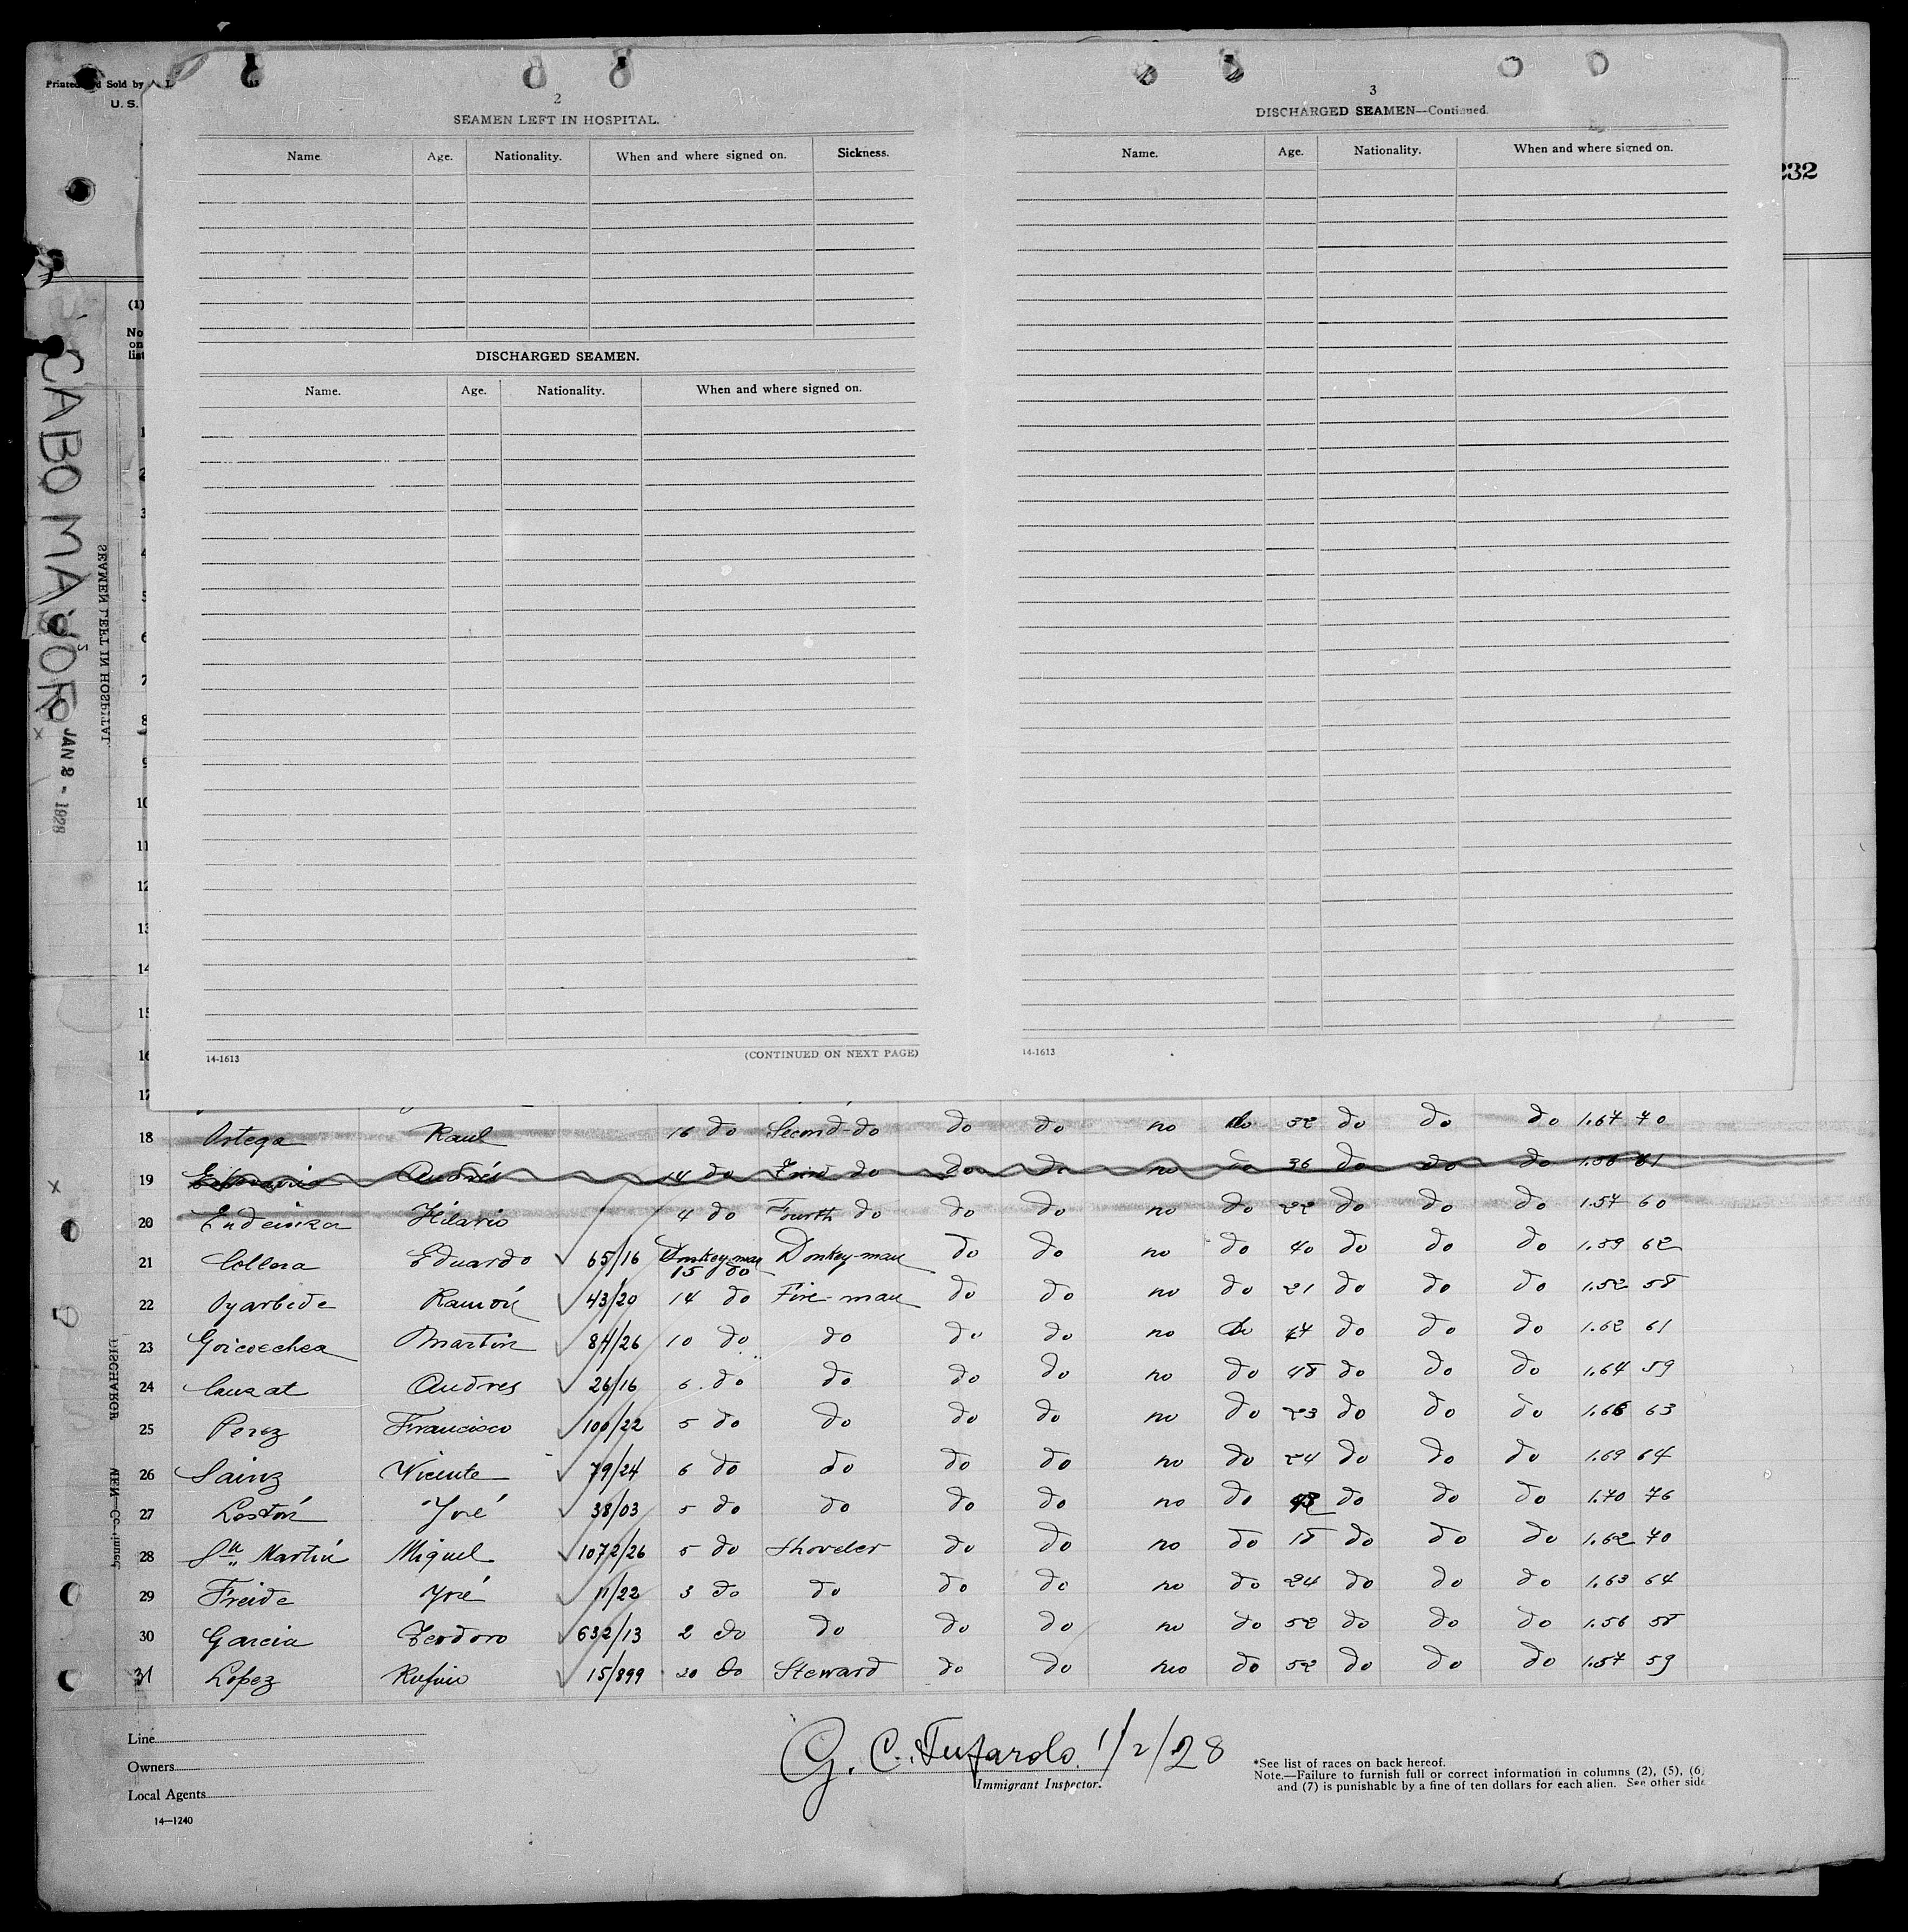 Printed and Sold by
U. S.
232
2
SEAMEN LEFT IN HOSPITAL.
Name. Age. Nationality. When and where signed on. Sickness.
DISCHARGED SEAMEN.
Name. Age. Nationality. When and where signed on.
14-1613 (CONTINUED ON NEXT PAGE)
3
DISCHARGED SEAMEN—Continued.
Name. Age. Nationality. When and where signed on.
14-1613
CABO MAYOR
JAN 2 - 1928
SEAMEN LEFT IN HOSPITAL.
(1)
No
on
list
1
2
3
4
5
6
7
8
9
10
11
12
13
14
15
16
17
18 Ortega Raul 16 do Second do do do no do 32 do do do 1.67 70
19 Andrés 14 do do do do no do 36 do do do 1.56 61
20 Endeiza Hilario 4 do Fourth do do do no do 22 do do do 1.57 60
21 Collera Eduardo 65/16 Donkey-man 15 do Donkey-man do do no do 40 do do do 1.59 62
22 Oyarbide Ramón 43/20 14 do Fire-man do do no do 21 do do do 1.52 58
23 Goicoechea Martin 84/26 10 do do do do no do 47 do do do 1.62 61
24 Lauzat Andres 26/16 6 do do do do no do 48 do do do 1.64 59
25 Perez Francisco 100/22 5 do do do do no do 23 do do do 1.66 63
26 Sainz Vicente 79/24 6 do do do do no do 24 do do do 1.69 64
27 Lostón José 38/03 5 do do do do no do do do do 1.70 76
28 Sn Martin Miguel 1072/26 5 do Shoveler do do no do 18 do do do 1.62 70
29 Freide José 11/22 3 do do do do no do 24 do do do 1.63 64
30 Garcia Teodoro 632/13 2 do do do do no do 52 do do do 1.56 58
31 Lopez Rufino 15/899 20 do Steward do do no do 52 do do do 1.57 59
Line
Owners
Local Agents
14—1240
G. C. Tufarolo 1/2/28
Immigrant Inspector.
*See list of races on back hereof.
Note.—Failure to furnish full or correct information in columns (2), (5), (6)
and (7) is punishable by a fine of ten dollars for each alien. See other side